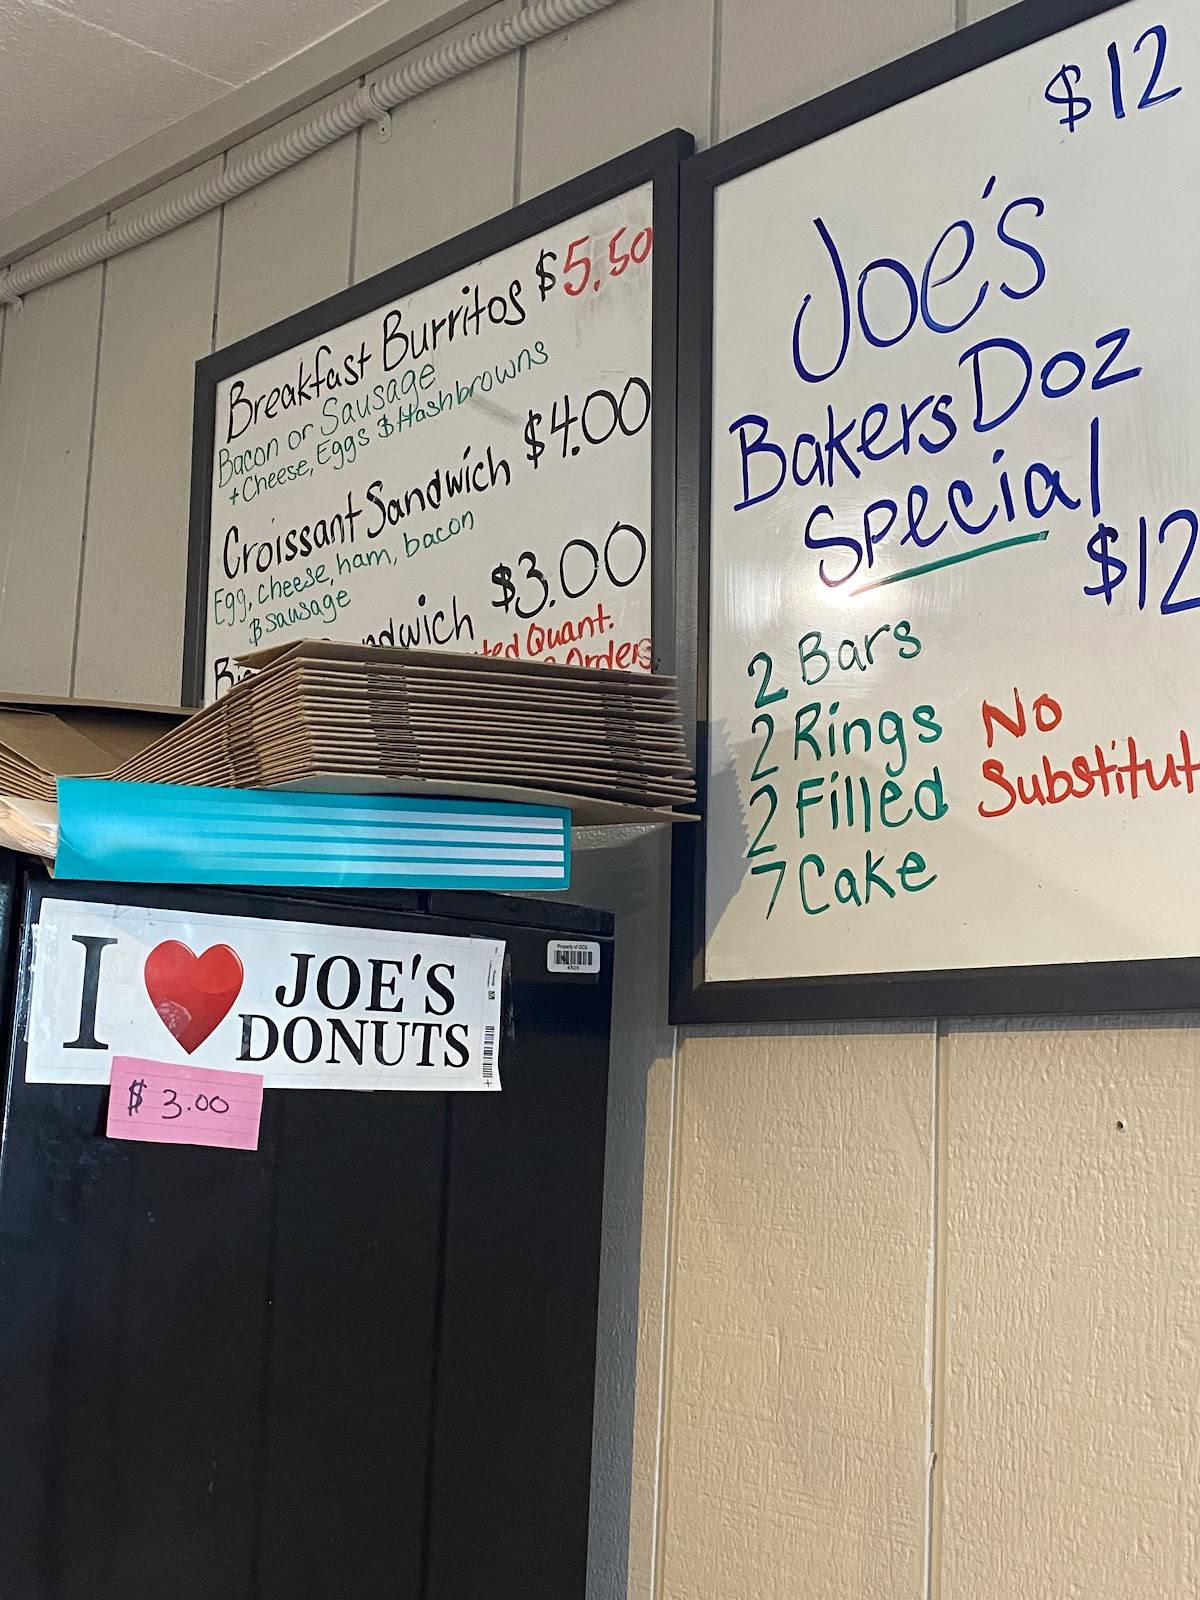 Breakfast Burritos $5.50
Bacon or Sausage
+ Cheese, Eggs & Hashbrowns
Croissant Sandwich $4.00
Egg, cheese, ham, bacon
& sausage
$3.00
Quant.
Orders
$12
Joe's
Bakers Doz
Special
$12
2 Bars
2 Rings
2 Filled
7 Cake
No
Substitut
I ♥ JOE'S
DONUTS
$ 3.00
Property of OCS